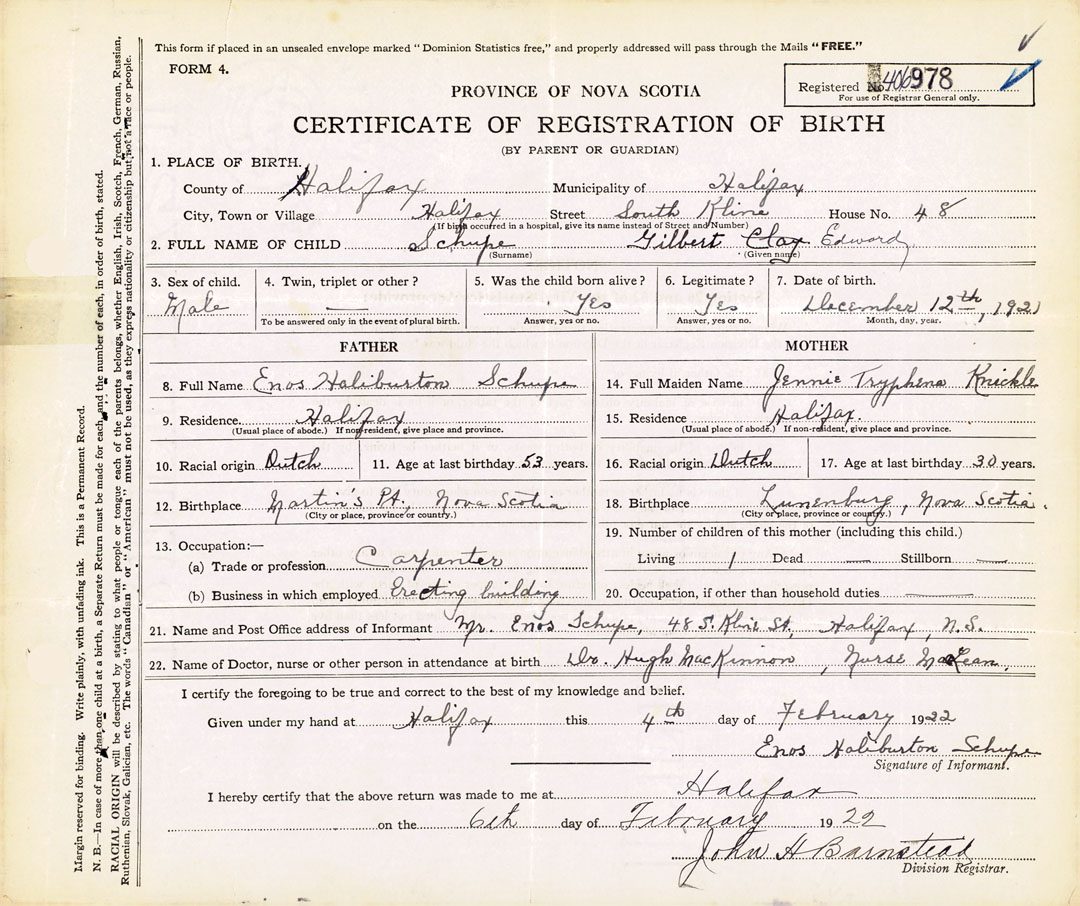 This form if placed in an unsealed envelope marked "Dominion Statistics free," and properly addressed will pass through the Mails "FREE."
FORM 4.
Registered No. 406978
For use of Registrar General only.
PROVINCE OF NOVA SCOTIA
CERTIFICATE OF REGISTRATION OF BIRTH
(BY PARENT OR GUARDIAN)
1. PLACE OF BIRTH.
County of Halifax Municipality of Halifax
City, Town or Village Halifax Street South Kline House No. 48
(If birth occurred in a hospital, give its name instead of Street and Number)
2. FULL NAME OF CHILD Schupe Gilbert Clay Edward
(Surname) (Given name)
3. Sex of child. 4. Twin, triplet or other? 5. Was the child born alive? 6. Legitimate? 7. Date of birth.
Male — Yes Yes December 12th, 1921
To be answered only in the event of plural birth. Answer, yes or no. Answer, yes or no. Month, day, year.
FATHER
8. Full Name Enos Haliburton Schupe
9. Residence. Halifax
(Usual place of abode.) If non-resident, give place and province.
10. Racial origin Dutch 11. Age at last birthday 53 years.
12. Birthplace Martin's Pt., Nova Scotia
(City or place, province or country.)
13. Occupation:—
(a) Trade or profession Carpenter
(b) Business in which employed Erecting building
MOTHER
14. Full Maiden Name Jennie Tryphena Knickle
15. Residence Halifax.
(Usual place of abode.) If non-resident, give place and province.
16. Racial origin Dutch 17. Age at last birthday 30 years.
18. Birthplace Lunenburg, Nova Scotia.
(City or place, province or country.)
19. Number of children of this mother (including this child.)
Living 1 Dead — Stillborn —
20. Occupation, if other than household duties —
21. Name and Post Office address of Informant Mr. Enos Schupe, 48 S. Kline St., Halifax, N.S.
22. Name of Doctor, nurse or other person in attendance at birth Dr. Hugh MacKinnon, Nurse MacLean,
I certify the foregoing to be true and correct to the best of my knowledge and belief.
Given under my hand at Halifax this 4th day of February 1922
Enos Haliburton Schupe
Signature of Informant.
I hereby certify that the above return was made to me at Halifax
on the 6th day of February 1922
John H Barnstead
Division Registrar.
Margin reserved for binding. Write plainly, with unfading ink. This is a Permanent Record.
N. B.—In case of more than one child at a birth, a Separate Return must be made for each, and the number of each, in order of birth, stated.
RACIAL ORIGIN will be described by stating to what people or tongue each of the parents belongs, whether English, Irish, Scotch, French, German, Russian,
Ruthenian, Slovak, Galician, etc. The words "Canadian" or "American" must not be used, as they express nationality or citizenship but not a race or people.